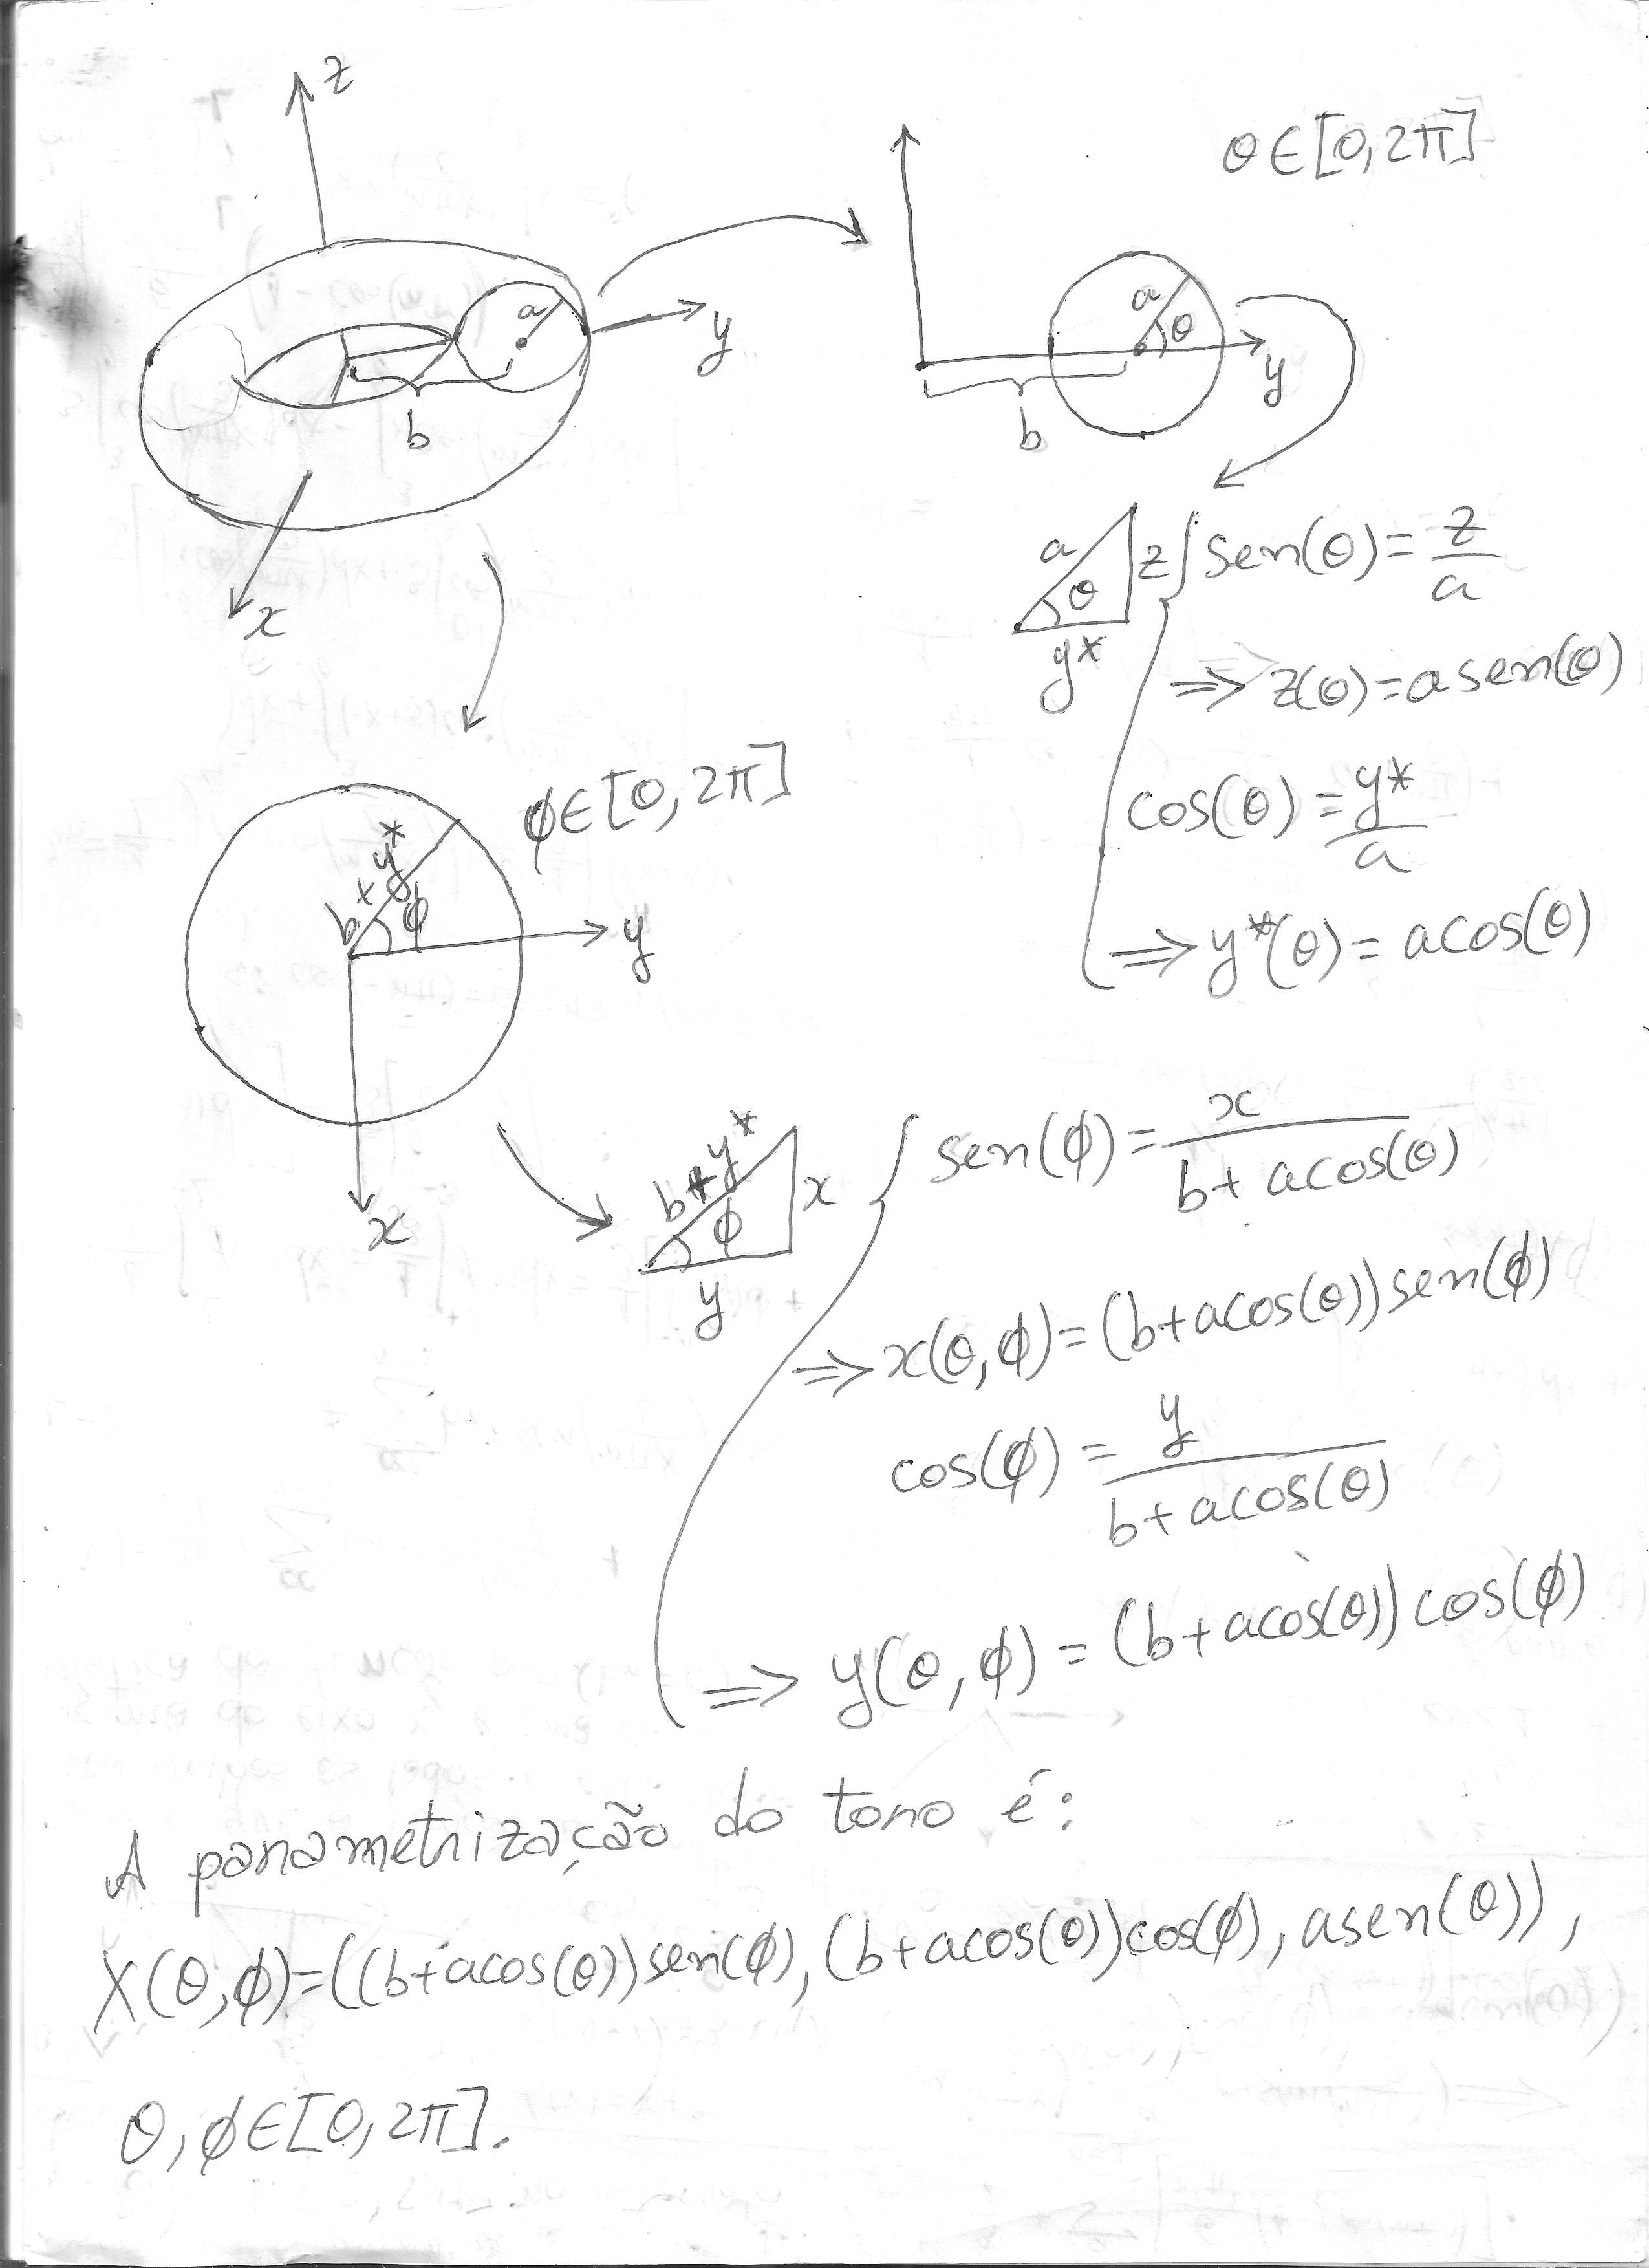 z
θ∈[0,2π]
a
y
b
x
a
θ
y
b
a
θ
z
y*
sen(θ)=z/a
⇒ z(θ)=asen(θ)
cos(θ)=y*/a
⇒ y*(θ)=acos(θ)
ϕ∈[0,2π]
b+y*
ϕ
y
x
b+y*
ϕ
x
y
sen(ϕ)=x/(b+acos(θ))
⇒ x(θ,ϕ)=(b+acos(θ))sen(ϕ)
cos(ϕ)=y/(b+acos(θ))
⇒ y(θ,ϕ)=(b+acos(θ))cos(ϕ)
A parametrização do toro é:
X(θ,ϕ)=((b+acos(θ))sen(ϕ),(b+acos(θ))cos(ϕ),asen(θ)),
θ,ϕ∈[0,2π].